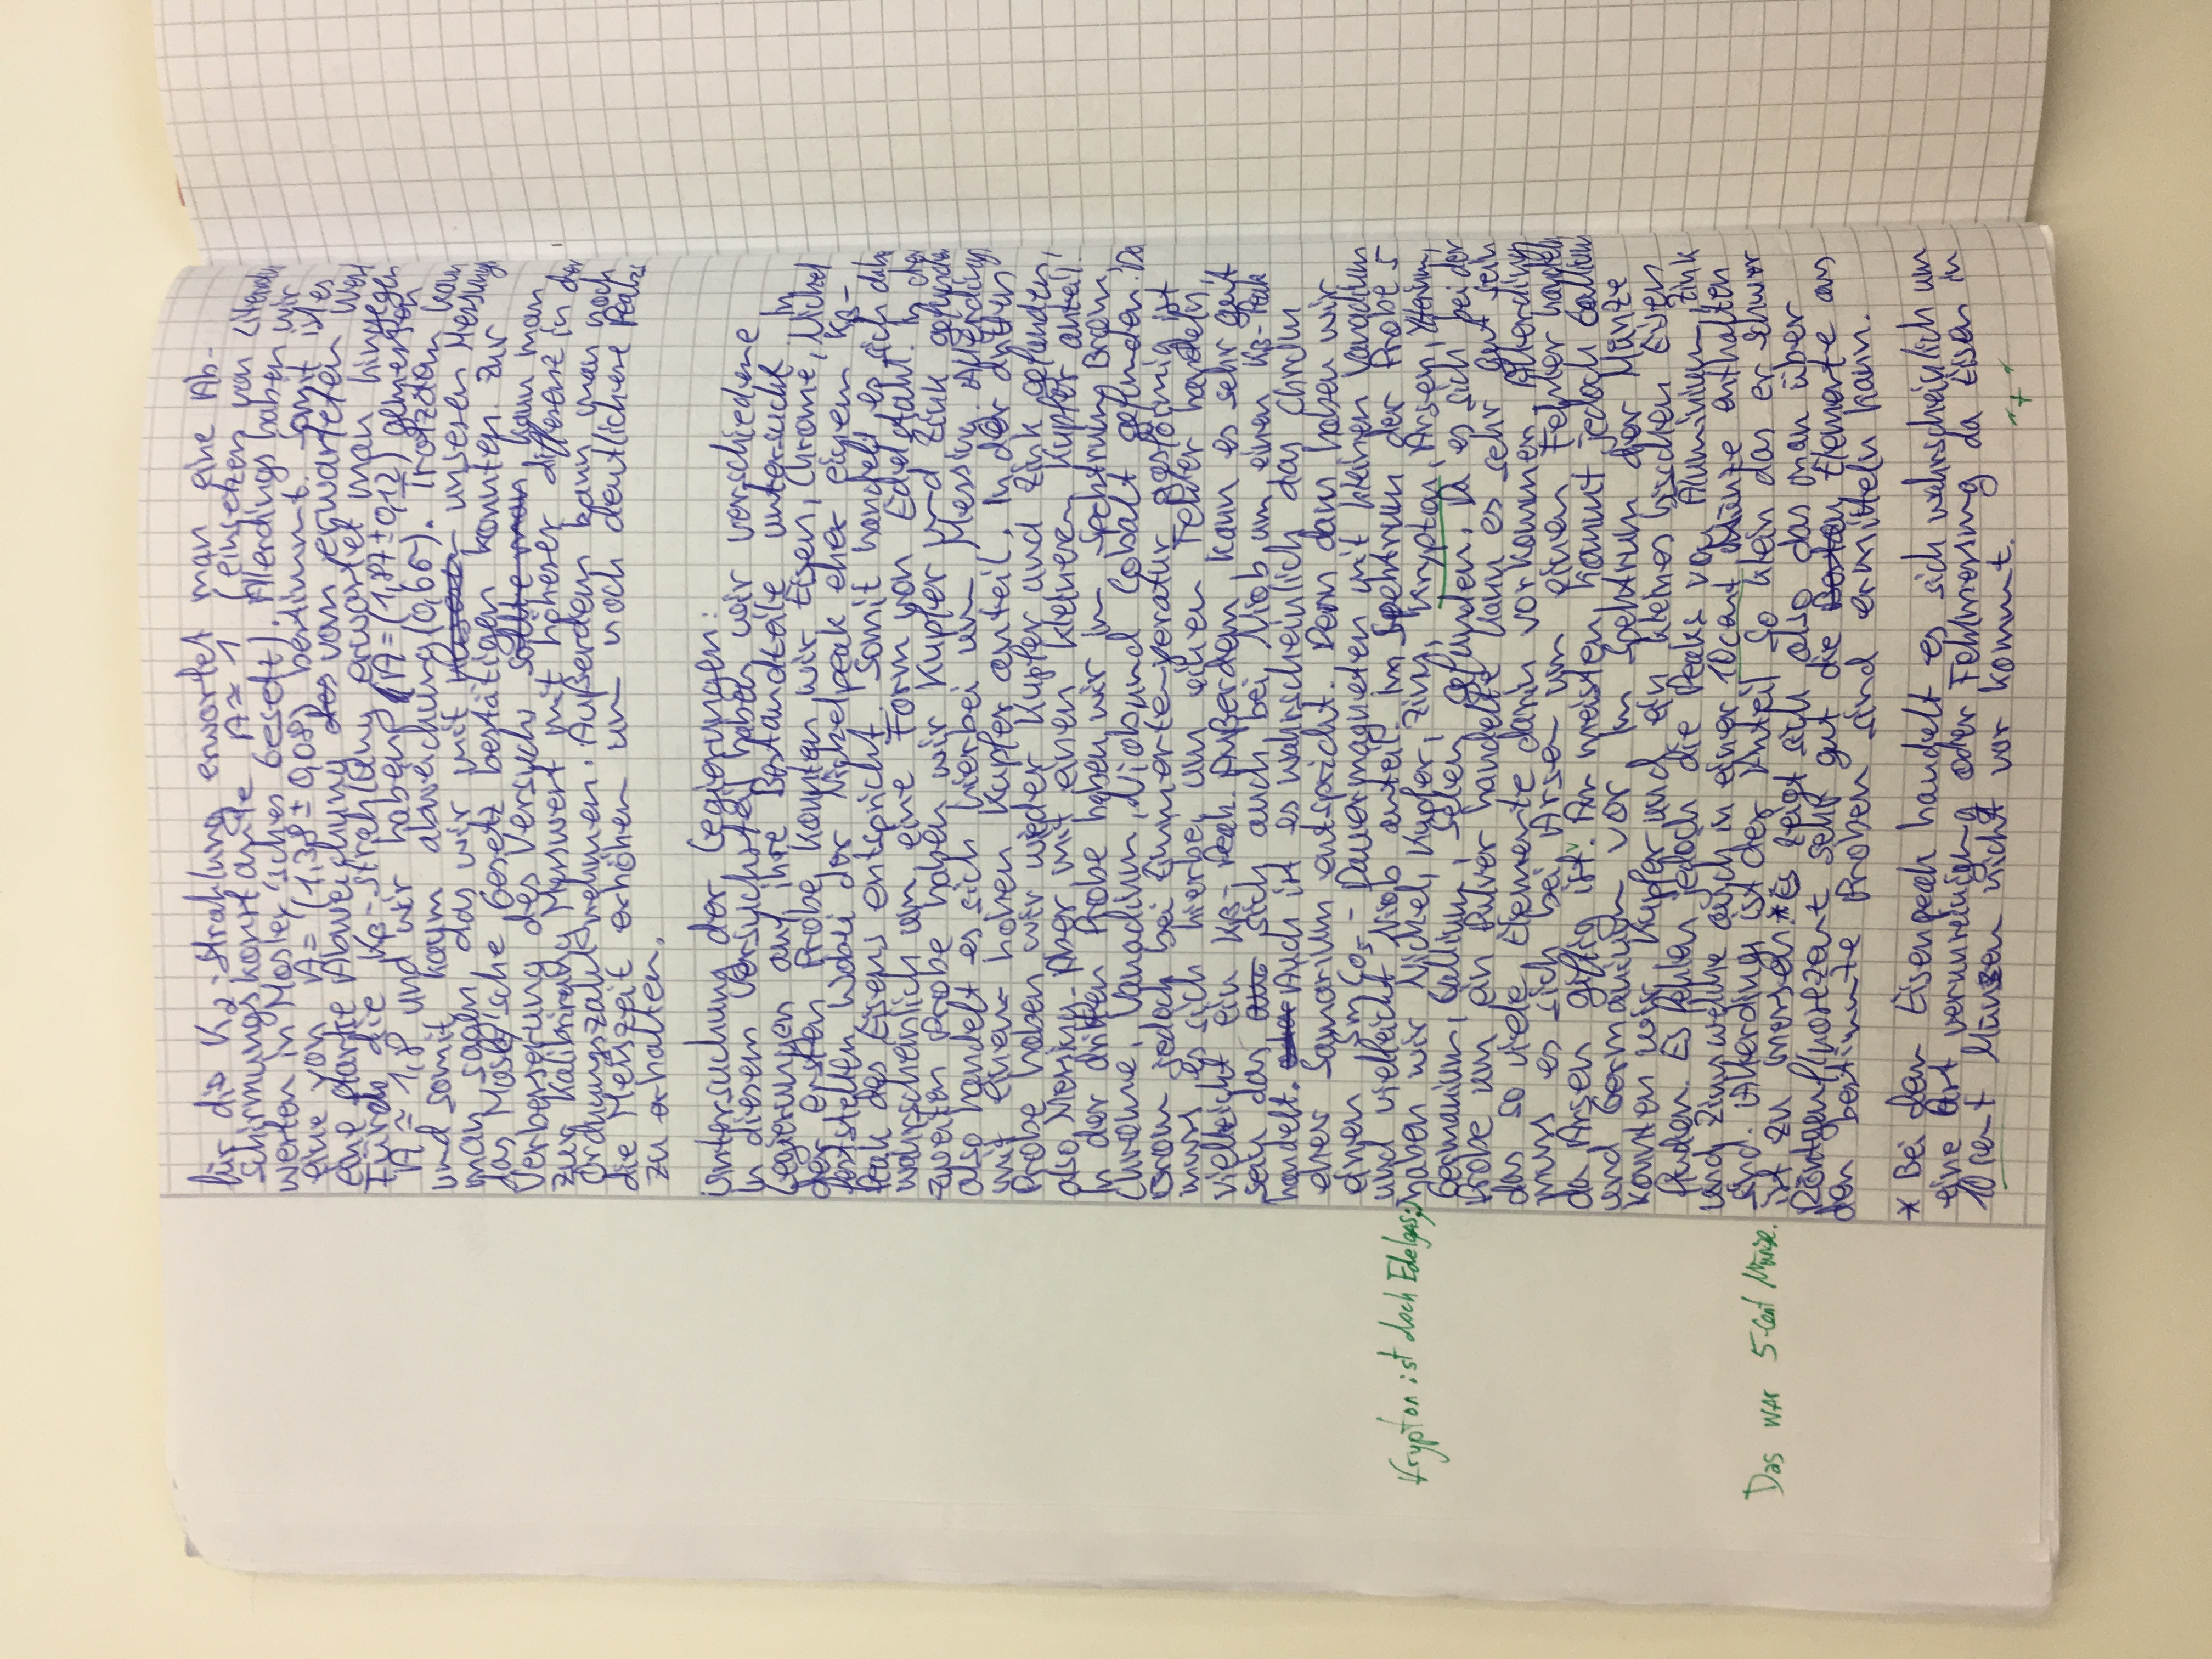 für die Kα-Strahlung erwartet man eine Ab-
schirmungskonstante A ≈ 1 (einsetzen von Literatur
werten in Mosley'sches Gesetz). Allerdings haben wir
eine von A = (1,38 ± 0,08) bestimmt. Somit ist es
eine starke Abweichung des vom erwarteten Wert
Für die Kβ-Strahlung erwartet man hingegen
A ≈ 1,8 und wir haben (A = (1,87 ± 0,12) gemessen
und somit kaum abweichung (0,6σ). Trotzdem kann
man sagen, das wir mit unseren Messung
das Mosley'sche Gesetz bestätigen konnten. Zur
Verbesserung des Versuchs sollte man, kann man
zur Kalibrirung Messwert mit höherer differenz in der
Ordnungszahl nehmen. Außerdem kann man noch
die Messzeit erhöhen um noch deutlichere Peaks
zu erhalten.
Untersuchung der Legierungen:
In diesem Versuchsteil haben wir verschiedene
Legierungen auf ihre Bestandteile untersucht. In
der ersten Probe konnten wir Eisen, Chrome, Nickel
feststellen. Wobei der Nickelpeak eher einem Kβ-
Peak des Eisens entspricht. Somit handelt es sich dabei
wahrscheinlich um eine Form von Edelstahl. In der
zweiten Probe haben wir Kupfer und Zink gefunden
also handelt es sich hierbei um Messing. Allerdings
mit einem hohen Kupfer anteil. In der dritten
Probe haben wir wieder Kupfer und Zink gefunden,
also Messing. Aber mit einen kleineren Kupfer anteil.
In der dritten Probe haben wir im Spektrum Brom,
Chrome, Vanadium, Niob und Cobalt gefunden. Da
Brom jedoch bei Zimmertemperatur gasförmig ist
muss es sich hierbei um einen Fehler handeln,
vielleicht ein Kβ-Peak. Außerdem kann es sehr gut
sein das sich auch bei Niob um einen Kβ-Peak
handelt. oder Auch ist es wahrscheinlich das Chrom
eher Samarium entspricht. Denn dann haben wir
einen SmCo5-Dauermagneten mit kleinen Vanadium
und vielleicht Niob anteil. Im Spektrum der Probe 5
Krypton ist doch Edelgas;)
haben wir Nickel, Kupfer, Zink, Krypton, Arsen, Ytterium,
Germanium, Gallium, Selen gefunden. Da es sich bei der
Probe um ein Pulver handelte kann es sehr gut sein
das so viele Elemente darin vorkommen. Allerdings
muss es sich bei Arsen um einen Fehler handeln
da Arsen giftig ist. Am meisten kommt jedoch Gallium
und Germanium vor. Im Spektrum der Münze
konnten wir Kupfer und ein kleines bischen Eisen
finden. Es fehlen jedoch die Peaks von Aluminium, Zink
und Zinn welche auch in einer 10 cent Münze enthalten
Das war 5-Cent Münze.
sind. Allerdings ist der Anteil so klein das er schwer
ist zu messen.* Es zeigt sich also das man über
Röntgenfluoreszent sehr gut die Elemente aus
den bestimmte Proben sind ermitteln kann.
* Bei dem Eisenpeak handelt es sich wahrscheinlich um
eine Art verunreinigung oder Fehlmessung da Eisen in
10 cent Münzen nicht vor kommt.
"+"